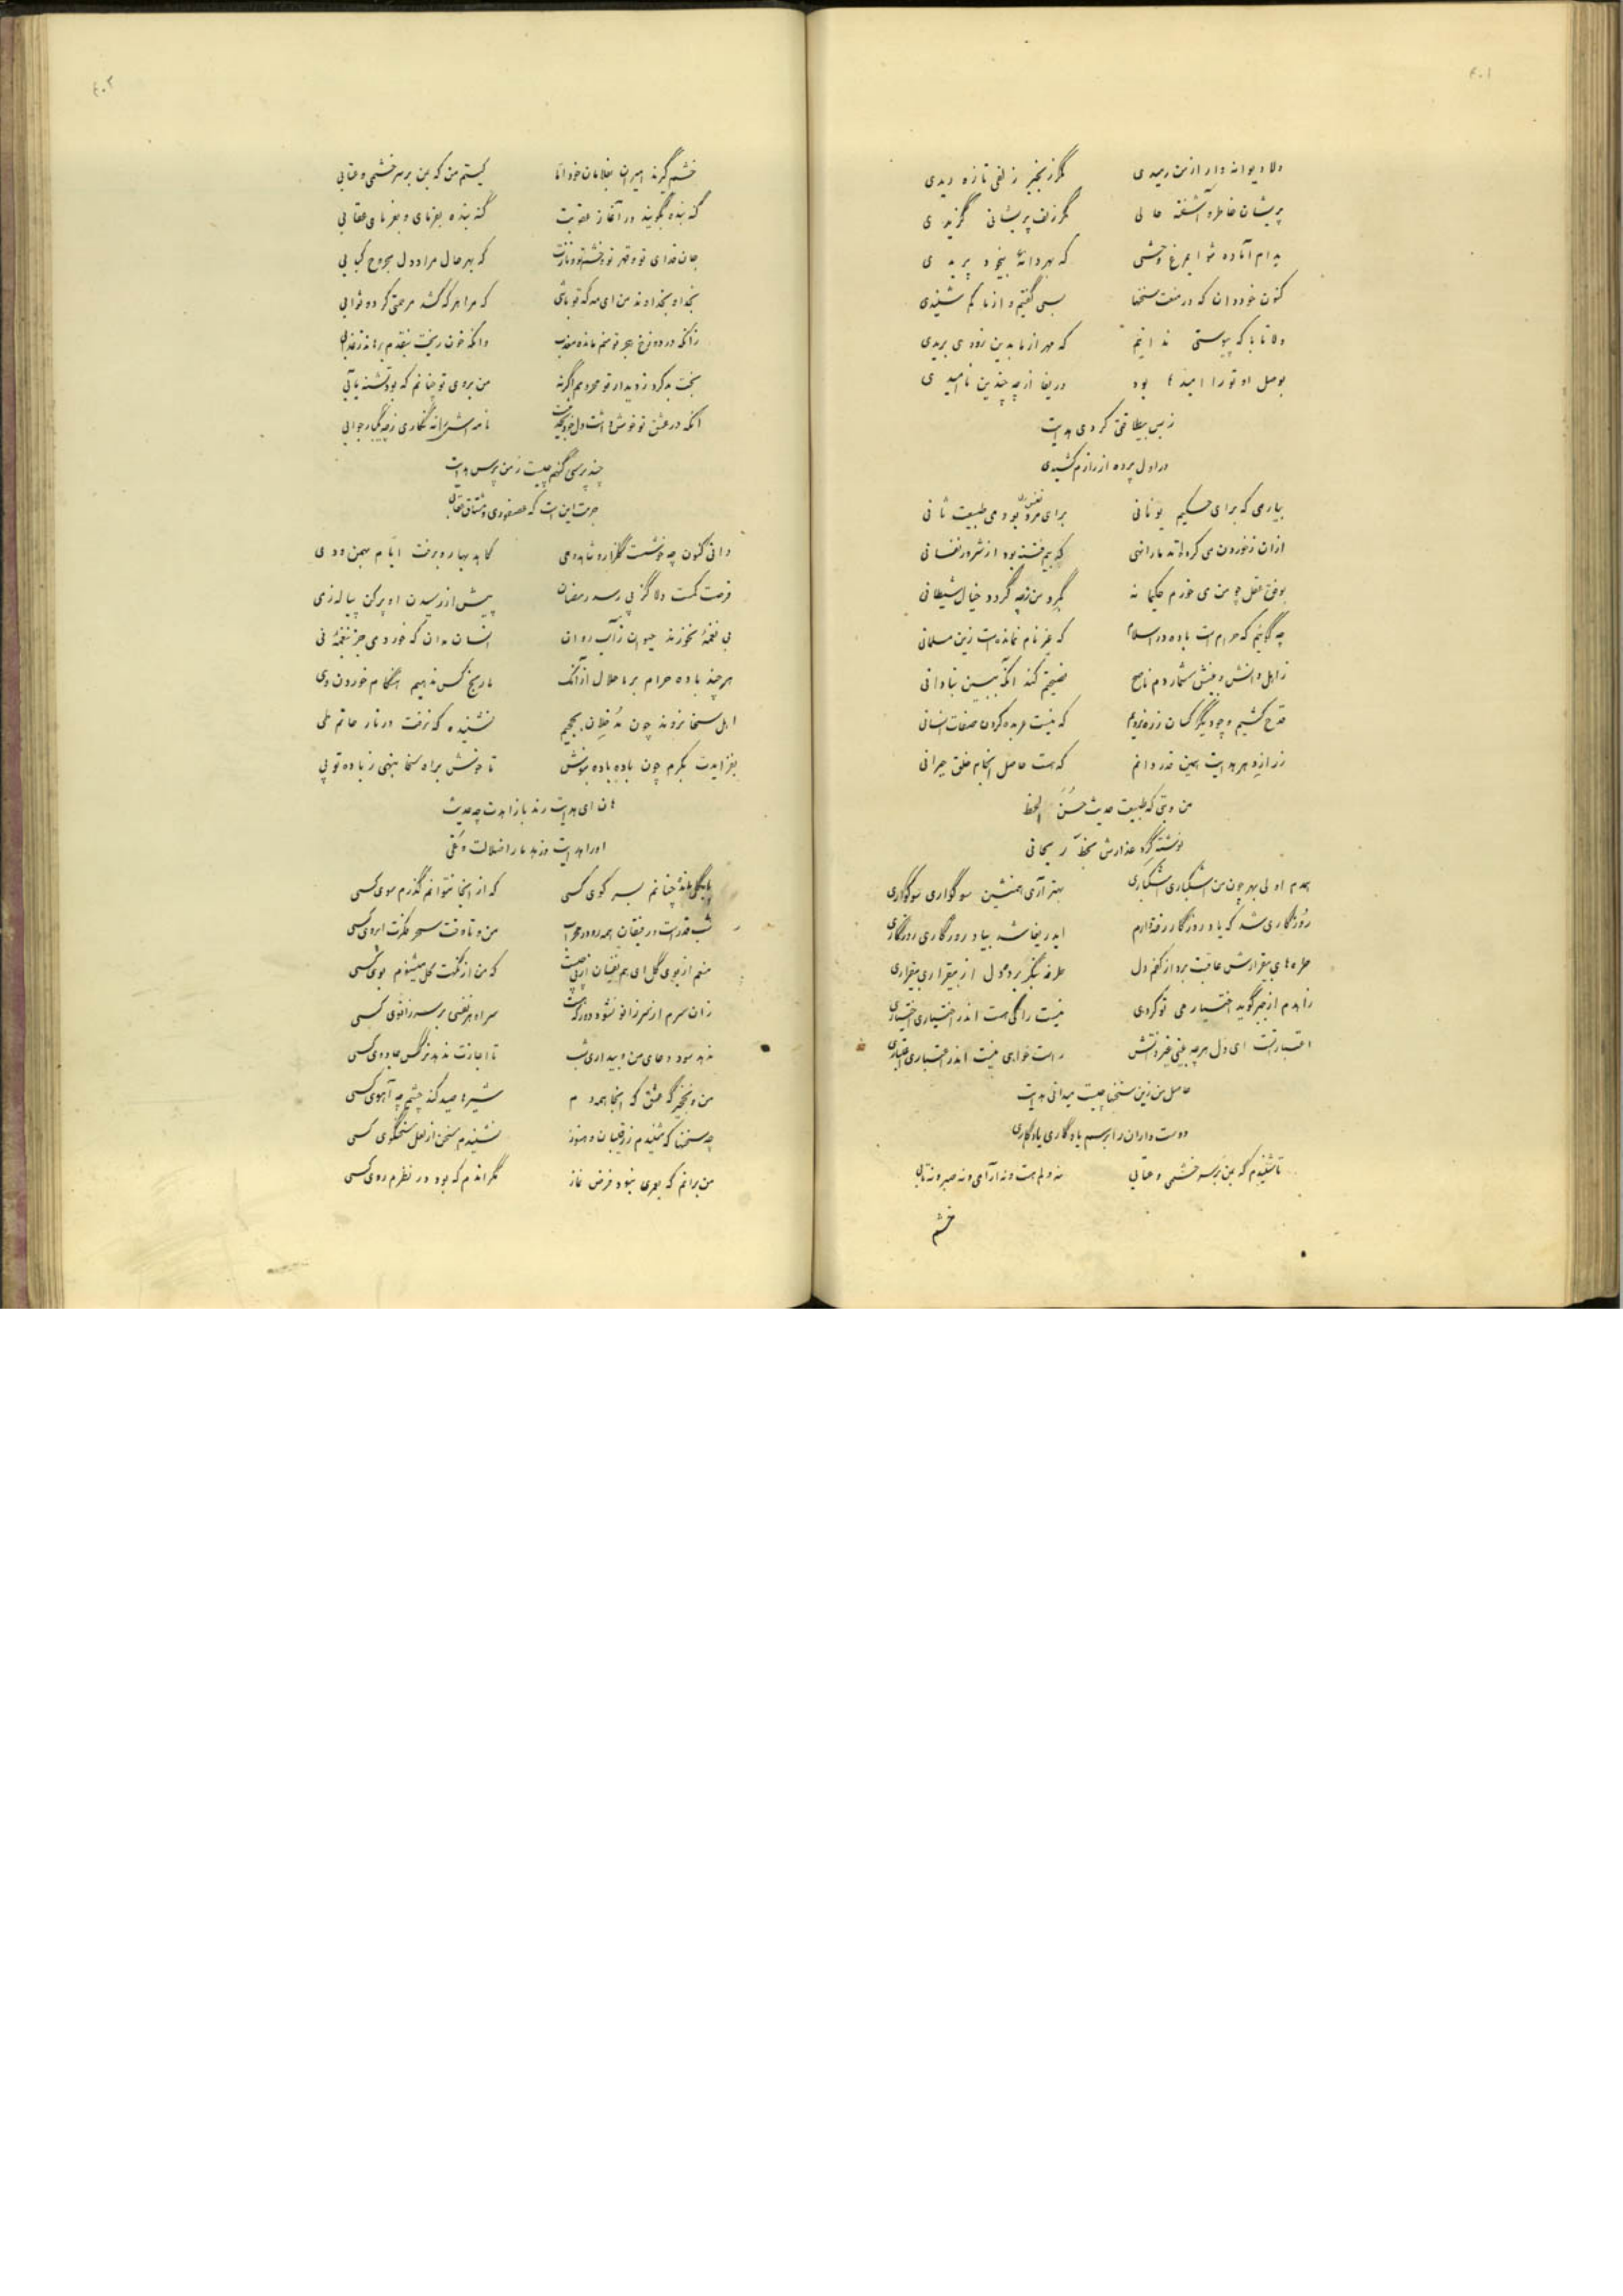 ۴۰۱
دلا دیوانه وار از من رمیدی مگر زنجیر زلفی تازه دیدی
پریشان خاطر و آشفته حالی مگر زلف پریشانی گزیدی
بدام آماده شو ای مرغ وحشی که بهر دانهٔ بیخود پریدی
کنون خود دان که در منعت سخنها بسی گفتیم و از ما کم شنیدی
دلا تا با که پیوستی ندانم که مهر از ما بدین زودی بریدی
بوصل او تو را امیدها بود دریغا از چه چندین ناامیدی
ز بس بیطاقتی کردی هدایت
در اول پرده از رازم کشیدی
بیار می که برای حکیم یونانی برای مرد بود می طبیعت ثانی
ازان نخوردن می کرد که بیم فتنه بود از شرور نفسانی
بوفق عقل چو من می خورم حکیمانه بگرد من ز چه گردد خیال شیطانی
چه گوئیم که حرام است باده در اسلام که غیر نام نمانده است زین مسلمانی
ز اهل دانش و بینش شماردم ناصح نصیحتم کند آنگه ببین بنادانی
قدح کشیم و چو دیگر کسان که نیست عربده کردن صفات انسانی
ز راز دهر هدایت همین قدر دانم که هست حاصل انجام خلق حیرانی
من و بتی که طبیعت حدیث حسن الخط
نوشته گرد عذارش بخط ریحانی
همدم اولی بهر چون من اشکباری اشکباری بهتر آری همنشین سوگواری سوگواری
روزگاری شد که با یاد روزگار رفته دارم ایدریغا شد بیاد روزگاری روزگاری
طره های بیقرارش عاقبت برد از کفم دل طرفه بنگر برد دل از بیقراری بیقراری
زاهدم از جبر گوید اختیار می تو کردی نیست را گی هست اندر اختیاری اختیاری
اعتبار تست ای دل هر چه بینی راست خواهی نیست اندر اعتباری اعتباری
حاصل من زین سخنها چیست میدانی هدایت
دوست داران را برسم یادگاری یادگاری
تا شنیدم که بمن بر سر خشمی و عتابی نه دلم هست و نه آرامی و نه صبر و نه تابی
خشم
۴۰۲
خشم گیرند امیران بغلامان خود اما کیستم من که بمن بر سر خشمی و عتابی
گنه بنده بگویند در آغاز عقوبت گنه بنده بفرمای و بفرمای عقابی
جان فدای تو و قهر تو که بهر حال مرا دل مجروح کبابی
بخدا و بخداوند من ای مه که تو باشی که مرا هر که کشد مرحمتی کرده ثوابی
زانکه در دوزخ هجر تو منم مانده معذب وانکه خون ریخت
بخت بد کرد ز دیدار تو محرومم اگرنه من بروی تو چنانم که بود تشنه بآبی
انکه در عشق تو خوش داشت دل
چند پرسی گنهم چیست ز من پرس هدایت
جرمت این است که
دانی کنون چه خوشست گلزار و شاهد و می کامد بهار و برفت ایام بهمن و دی
فرصت کمست دلا گز پی رسد رمضان پیش از رسیدن او پر کن پیاله ز می
بی نغمهٔ نخورند حیوان ز آب روان انسان مدان که خورد می جز بنغمهٔ نی
هر چند باده حرام بر ما حلال ازآنک ما رنج کس ندهیم هنگام خوردن وی
اهل سخا نروند چون مدخلان بجحیم نشنیده که نرفت در نار حاتم طی
بفزایدت بکرم چون باده باده بنوش تا خوش براه سخا بنهی ز باده تو پی
هان ای هدایت رند با زاهدت چه حدیث
او را هدایت و زهد ما را ضلالت و غی
چنانم بسر کوی کسی که از اینجا نتوانم گذرم سوی کسی
شب قدرست و رفیقان همه رو در محراب من و تا وقت سحر فکرت ابروی کسی
منم از بوی گل ای هم نفسان که من از نکهت گل میشنوم بوی کسی
زان سرم از سر زانو نشود دور که هست سر او هر نفسی بر سر زانوی کسی
ندهد سود دعای من و بیداری شب تا اجازت ندهد نرگس جادوی کسی
من و نخجیرگه عشق که اینجا همه دم شیرها صید کند چشم چه آهوی کسی
چه سخنها که شنیدم ز رقیبان و هنوز نشنیدم سخن از لعل سخنگوی کسی
من برانم که بعمری نبود فرض نماز مگر اندم که بود در نظرم روی کسی